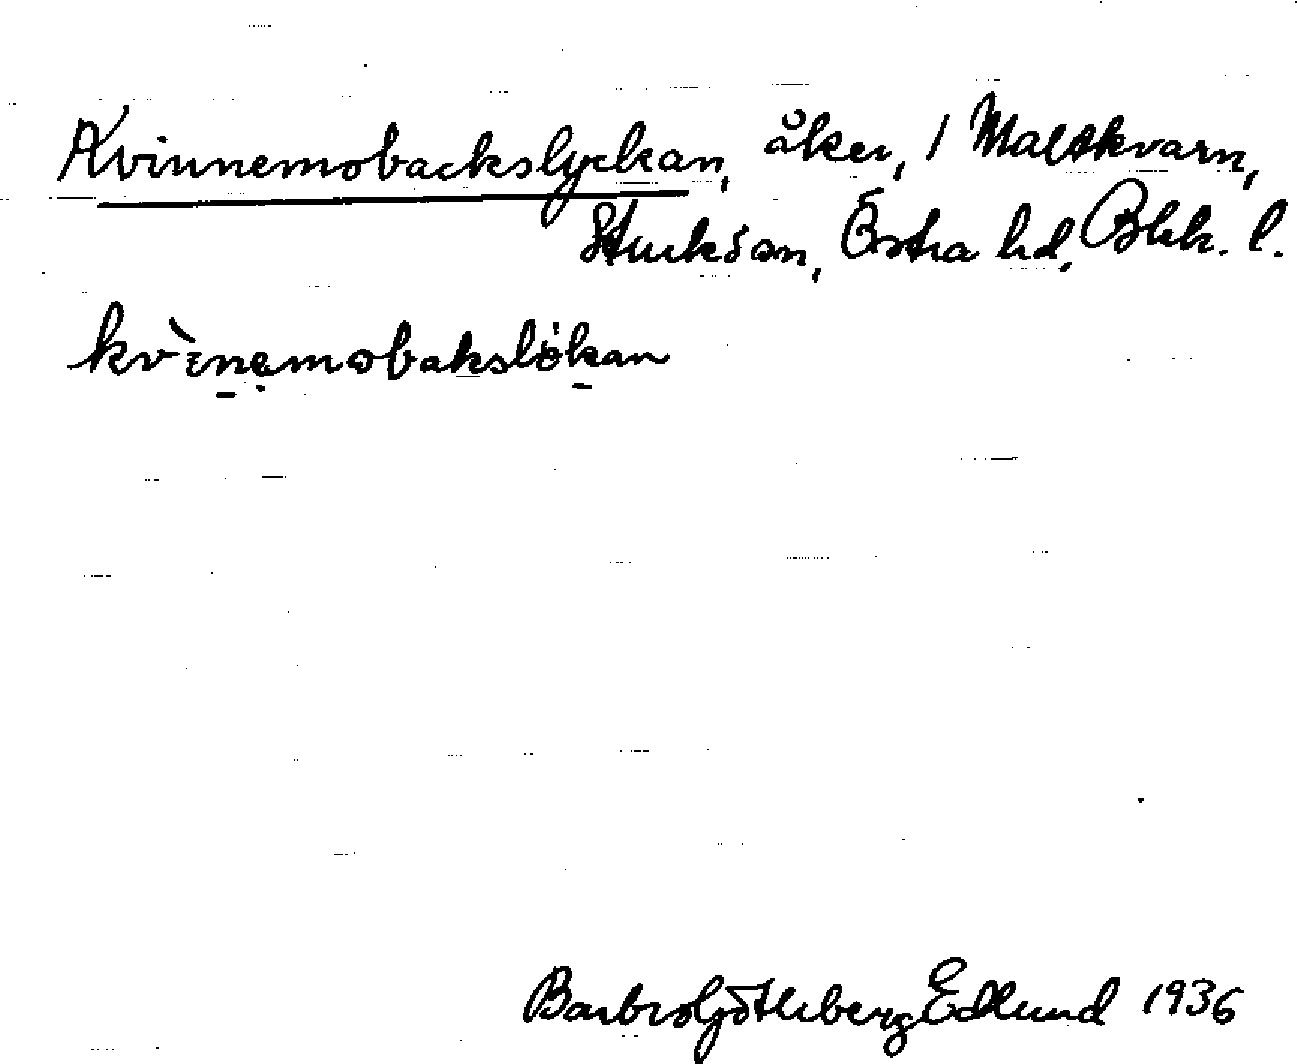 Kvinnemobackslyckan, åker, 1 Maltkvarn,
Sturkön, Östra hd, Blek. l.
kvìnemobakslökan
Barbro Götleberg Edlund 1936